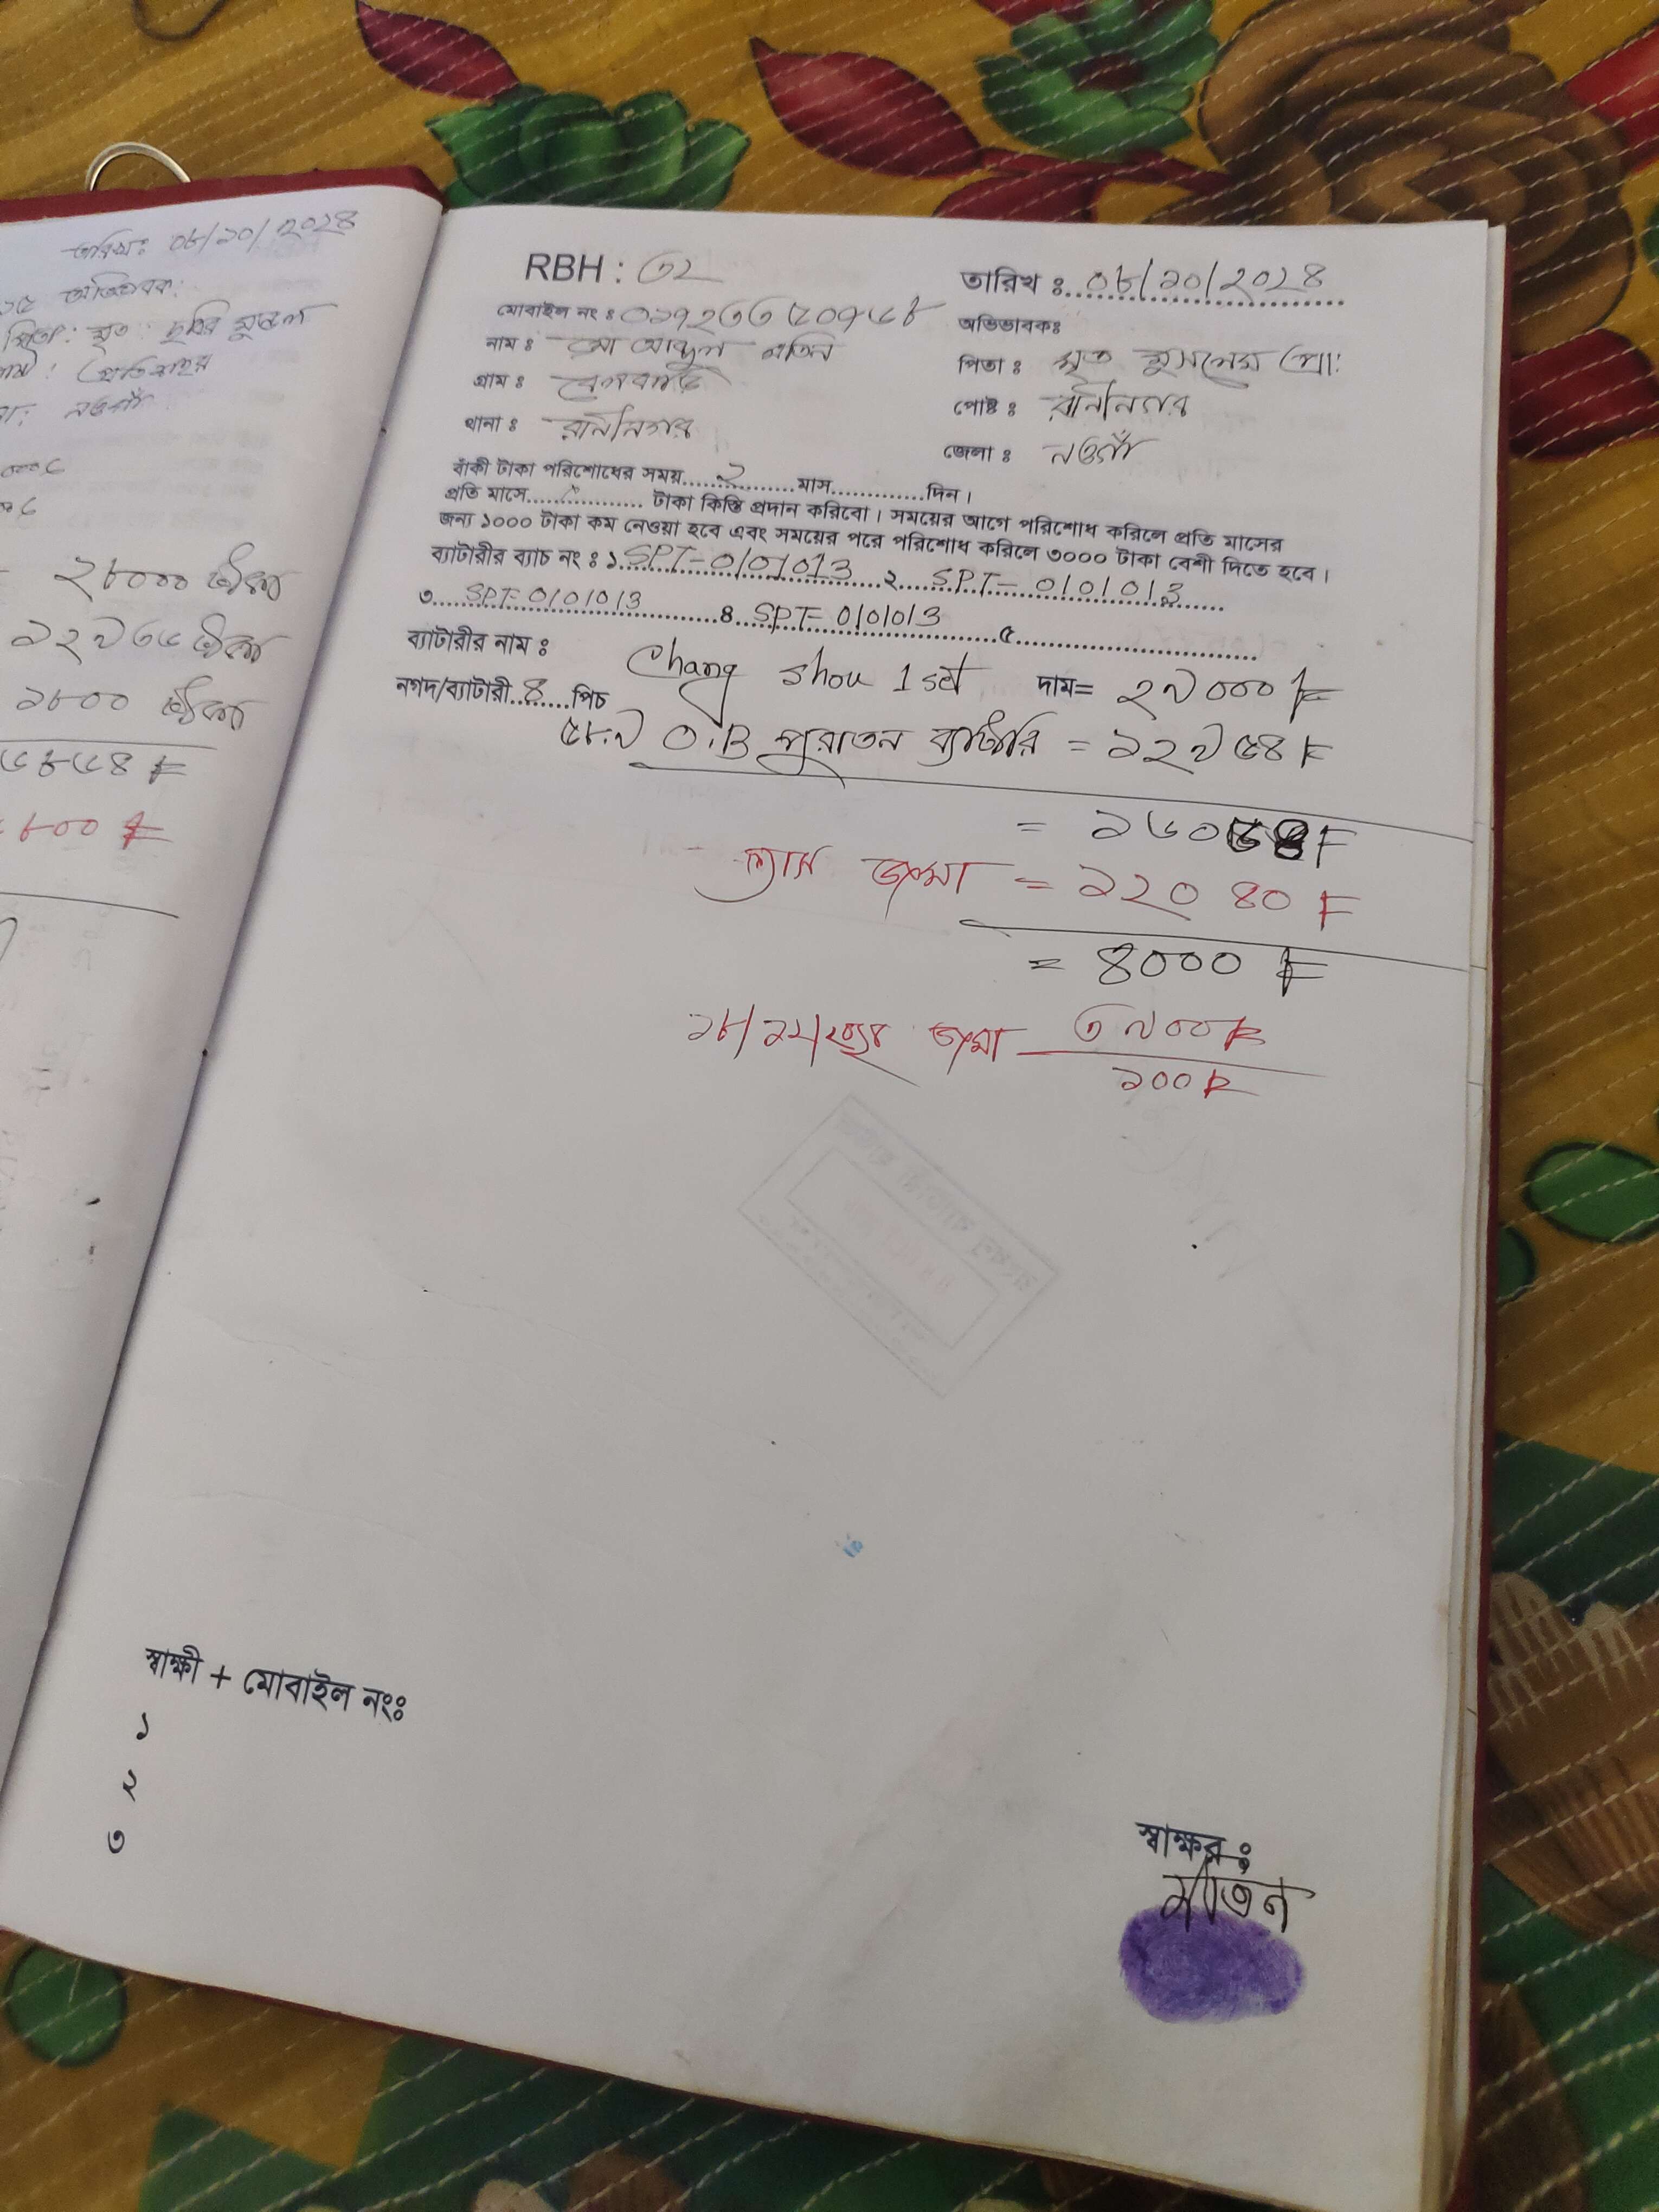 তারিখ: ০৮/১০/২০২৪
অভিভাবক:
পিতা: মৃত:
নওগাঁ
২৮০০০ টাকা
১২৯৩৬ টাকা
১৮০০ টাকা
৮০০ ৳
RBH : ৩২
তারিখ ঃ ০৮/১০/২০২৪
মোবাইল নং ঃ ০১৭২৩৩৫০৭৬৮
অভিভাবকঃ
নাম ঃ মো আব্দুল মতিন
পিতা ঃ মৃত মুসলেম প্রা:
গ্রাম ঃ বেলবাড়ি
পোষ্ট ঃ রানীনগর
থানা ঃ রানীনগর
জেলা ঃ নওগাঁ
বাঁকী টাকা পরিশোধের সময়......২......মাস............দিন।
প্রতি মাসে............ টাকা কিস্তি প্রদান করিবো। সময়ের আগে পরিশোধ করিলে প্রতি মাসের
জন্য ১০০০ টাকা কম নেওয়া হবে এবং সময়ের পরে পরিশোধ করিলে ৩০০০ টাকা বেশী দিতে হবে।
ব্যাটারীর ব্যাচ নং ঃ ১. SPT-0101013 ২. SPT-0101013
৩. SPT-0101013 ৪. SPT-0101013 ৫.
ব্যাটারীর নাম ঃ Chang shou 1 set দাম= ২৯০০০ ৳
নগদ/ব্যাটারী..৪..পিচ
৫৮.৯ O.B পুরাতন ব্যাটারি = ১২৯৫৪ ৳
= ১৬০৪৪ ৳
জমা = ১২০৪০ ৳
= ৪০০০ ৳
১৮/১২/২০২৪ জমা ৩৯০০ ৳
১০০ ৳
স্বাক্ষী + মোবাইল নংঃ
১
২
৩
স্বাক্ষর ঃ
মতিন